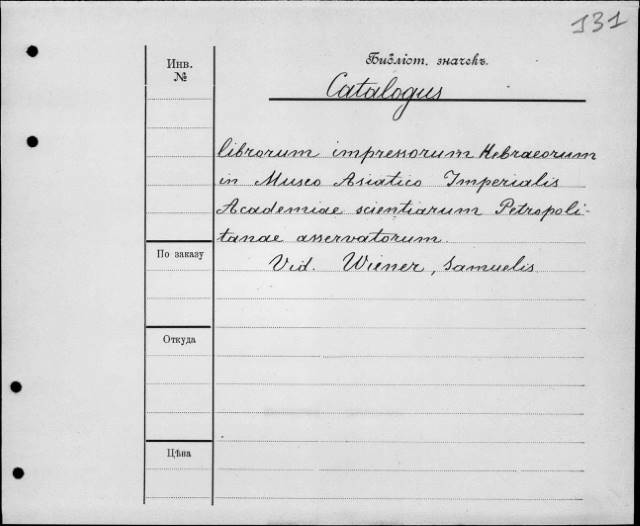 131
Инв.
№
Библіот. значекъ.
Catalogus
librorum impressorum Hebraeorum
in Museo Asiatico Imperialis
Academiae scientiarum Petropoli-
tanae asservatorum.
Vid. Wiener, Samuelis
По заказу
Откуда
Цѣна